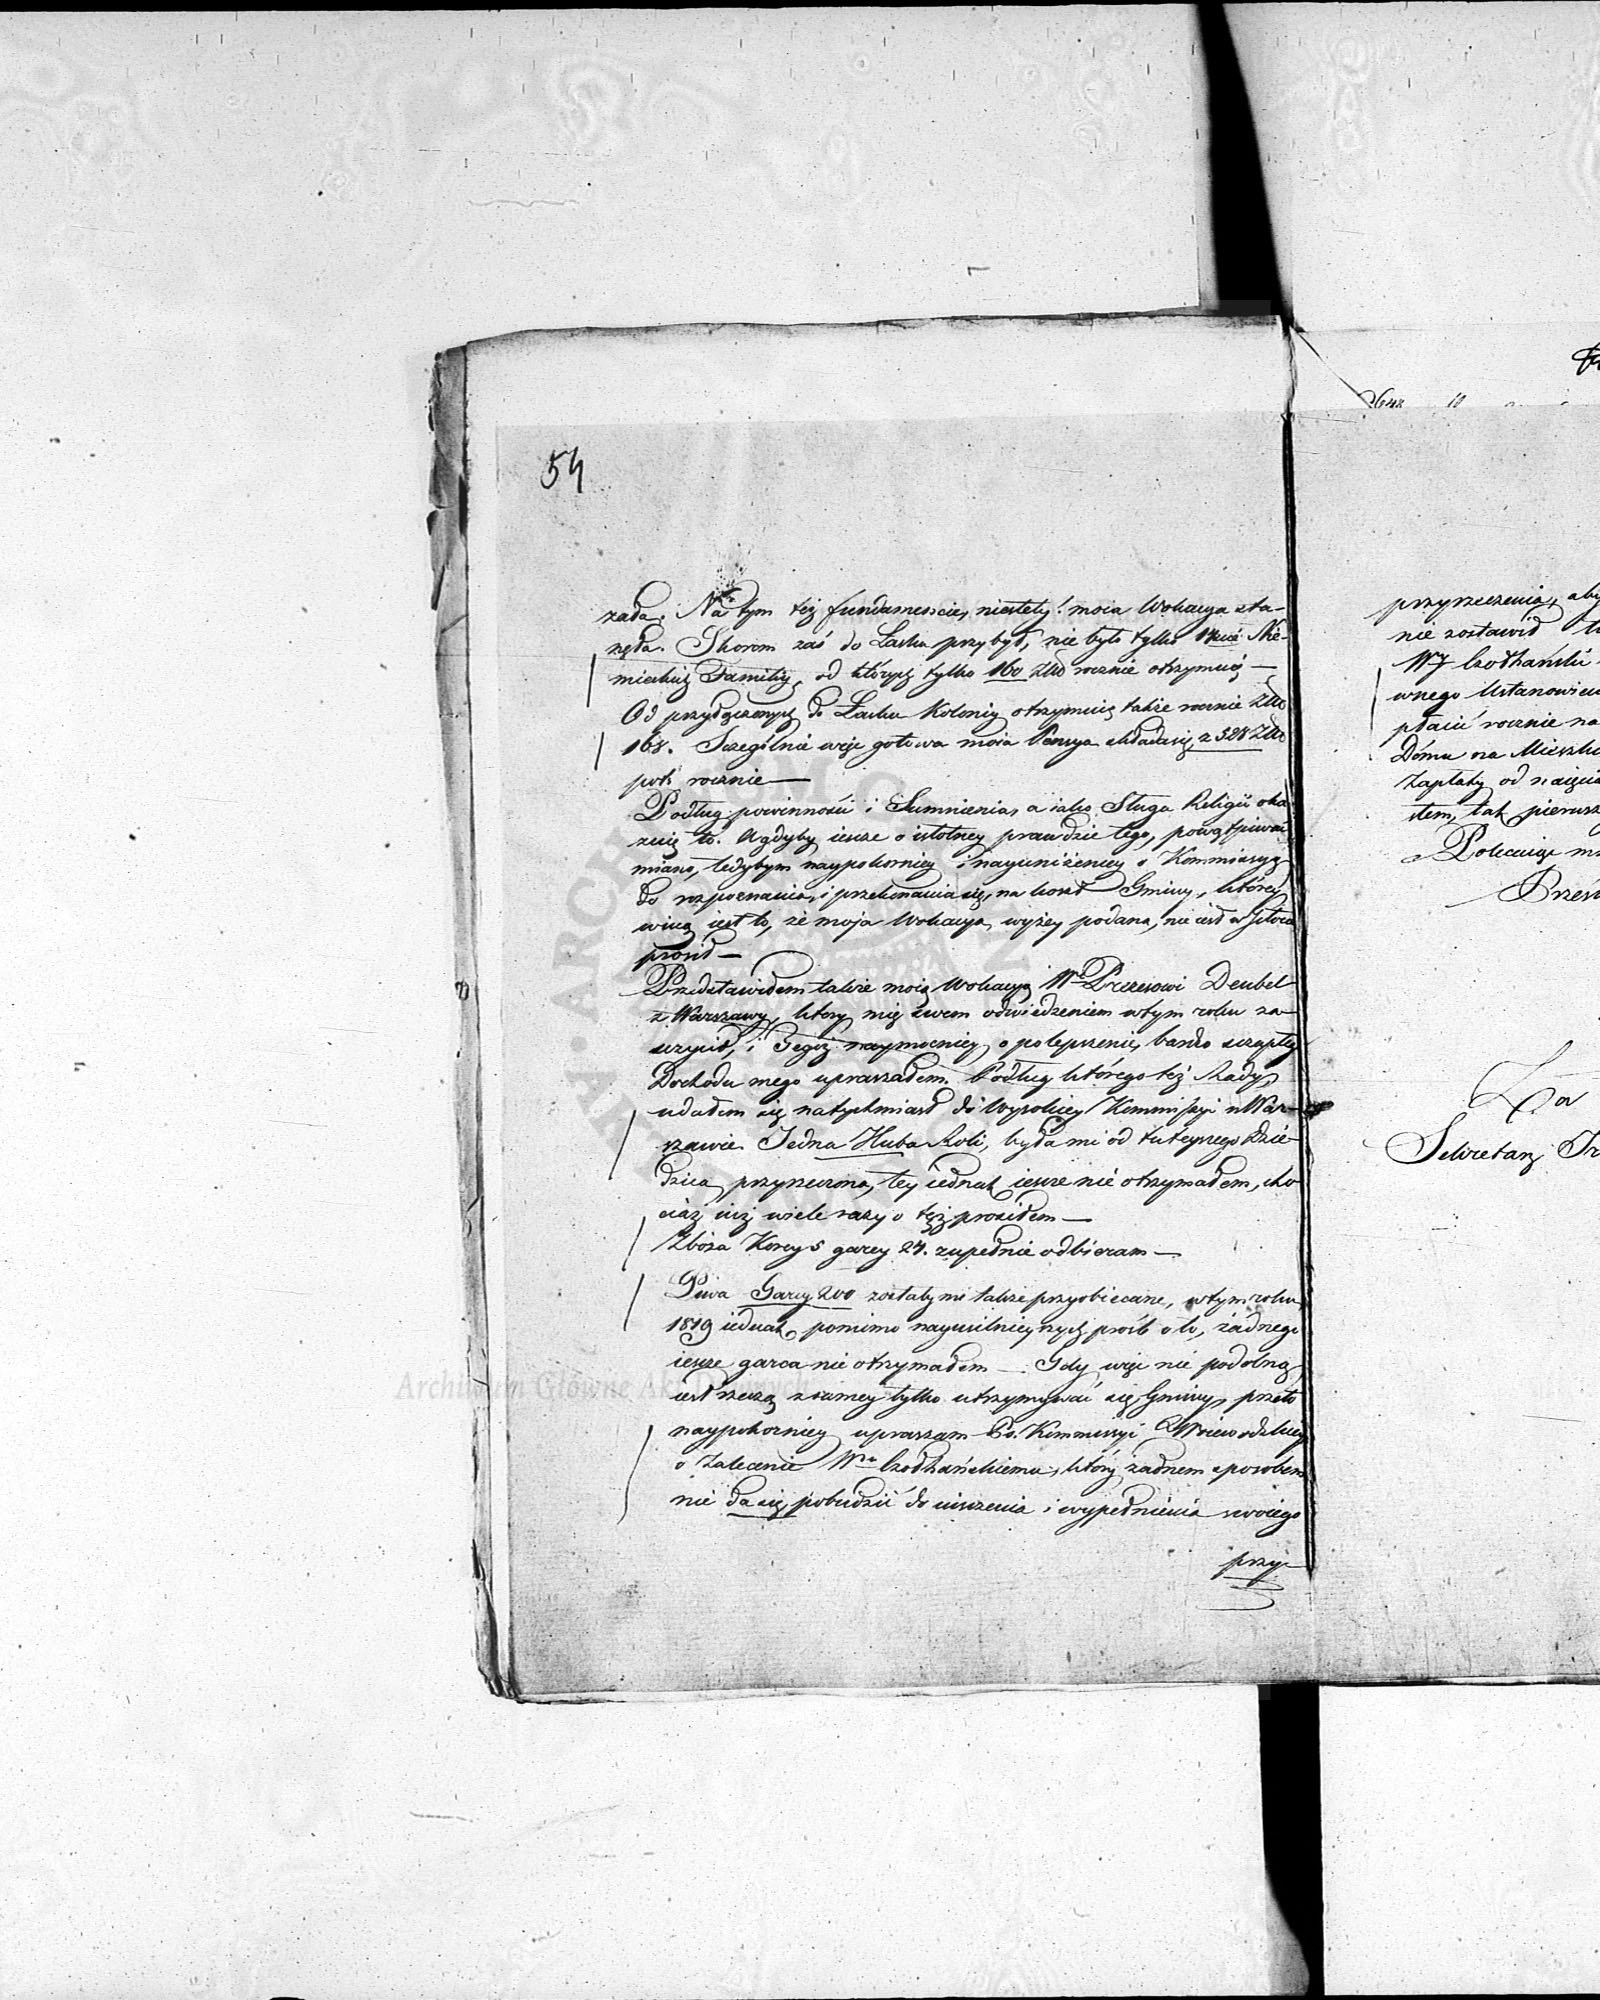 54
rzada. Na tym też fundamencie, niestety! moia Wokacya sta-
nęła. Skorom zaś do Łasku przybył, nie było tylko Nie-
mieckiej Familiy, od których tylko 160 Złło rocznie otrzymuię —
Od przyłączonych do Łasku Kolonij otrzymuię także rocznie Złło
168. Szczególnie więc gotowa moia Pensya składa się z 328 Złło
pols rocznie —
Podług powinności i Sumnienia, a iako Sługa Religii oka-
zuię to. A gdyby iesze o istotney prawdzie tego, powątpiwać
miano, tedybym naypokorniey i nayuniżeniey o Kommissyą
do rozpoznania, i przekonania się, na koszt Gminy, którey
winą iest to, że moja Wokacya, wyżey podana, nie iest w Istocie
prosił —
Przedstawiłem także moią Wokacyą Wu Prezesowi Deubel
z Warszawy, który mię swem odwiedzeniem w tym roku za-
szczycił, i Tegoż naymocniey o polepszenie, bardzo szczupłey
Dochodu mego upraszałem. Podług którego też Rady,
udałem się natychmiast do Wysokiey Kommissyi w War-
szawie. Jedna Huba Roli, była mi od tuteyszego Dzie-
dzica przyrzeczona, tey iednak iesze nié otrzymałem, cho-
ciaż iuż wiele razy o tęż prosiłem —
Zboża Korcy 5 garcy 24. zupełnie odbieram —
Piwa Garcy 200 zostały mi także przyobiecane, w tym roku
1819 iednak, pomimo nayusilnieyszych prośb o to, żadnego
iesze garca nie otrzymałem — Gdy więc nie podobną
iest rzeczą z samey tylko utrzymywać się Gminy, przeto
naypokorniey upraszam Po. Kommissyi Woiewodzkiey
o Zalecenie Wu Czołhańskiemu, który żadnem sposobem
nie da się pobudzić do uiszczenia i wypełnienia swoiego
przy-
przyrzeczenia, aby
nie zostawił
WJ Czołhański
wnego Ustanowien
płacić rocznie na
Dómu na Mieszk
Zapłaty od naięcia
stem, tak pierwsz
Polecaiąc
Brześ
Za
Sekretarz
Archiwum Główne Akt Dawnych